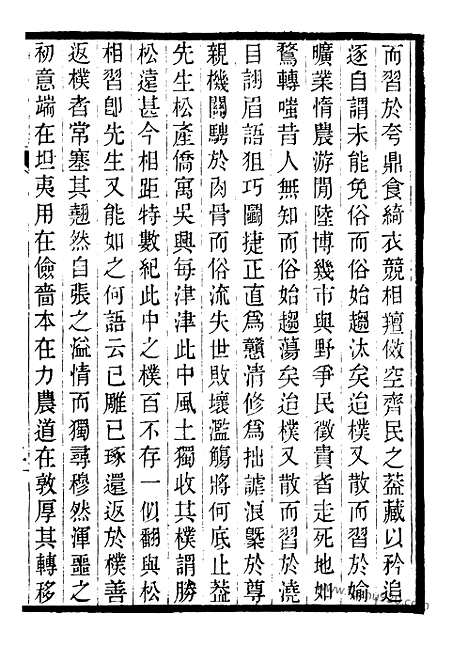 而習於夸鼎食綺衣競相羶倣空齊民之葢藏以矜追
逐自謂未能免俗而俗始趨汰矣迨樸又散而習於媮
曠業惰農游閒陸博幾市與野爭民徵貴者走死地如
騖轉嗤昔人無知而俗始趨蕩矣迨樸又散而習於澆
目詡眉語狙巧鬬捷正直爲戇清修爲拙謔浪槩於尊
親機關騁於肉骨而俗流失世敗壞濫觴將何底止葢
先生松產僑寓吳興每津津此中風土獨收其樸謂勝
松遠甚今相距特數紀此中之樸百不存一何翻與松
相習卽先生又能如之何語云已雕已琢還返於樸善
返樸者常塞其翹然自張之溢情而獨尋穆然渾噩之
初意端在坦夷用在儉嗇本在力農道在敦厚其轉移